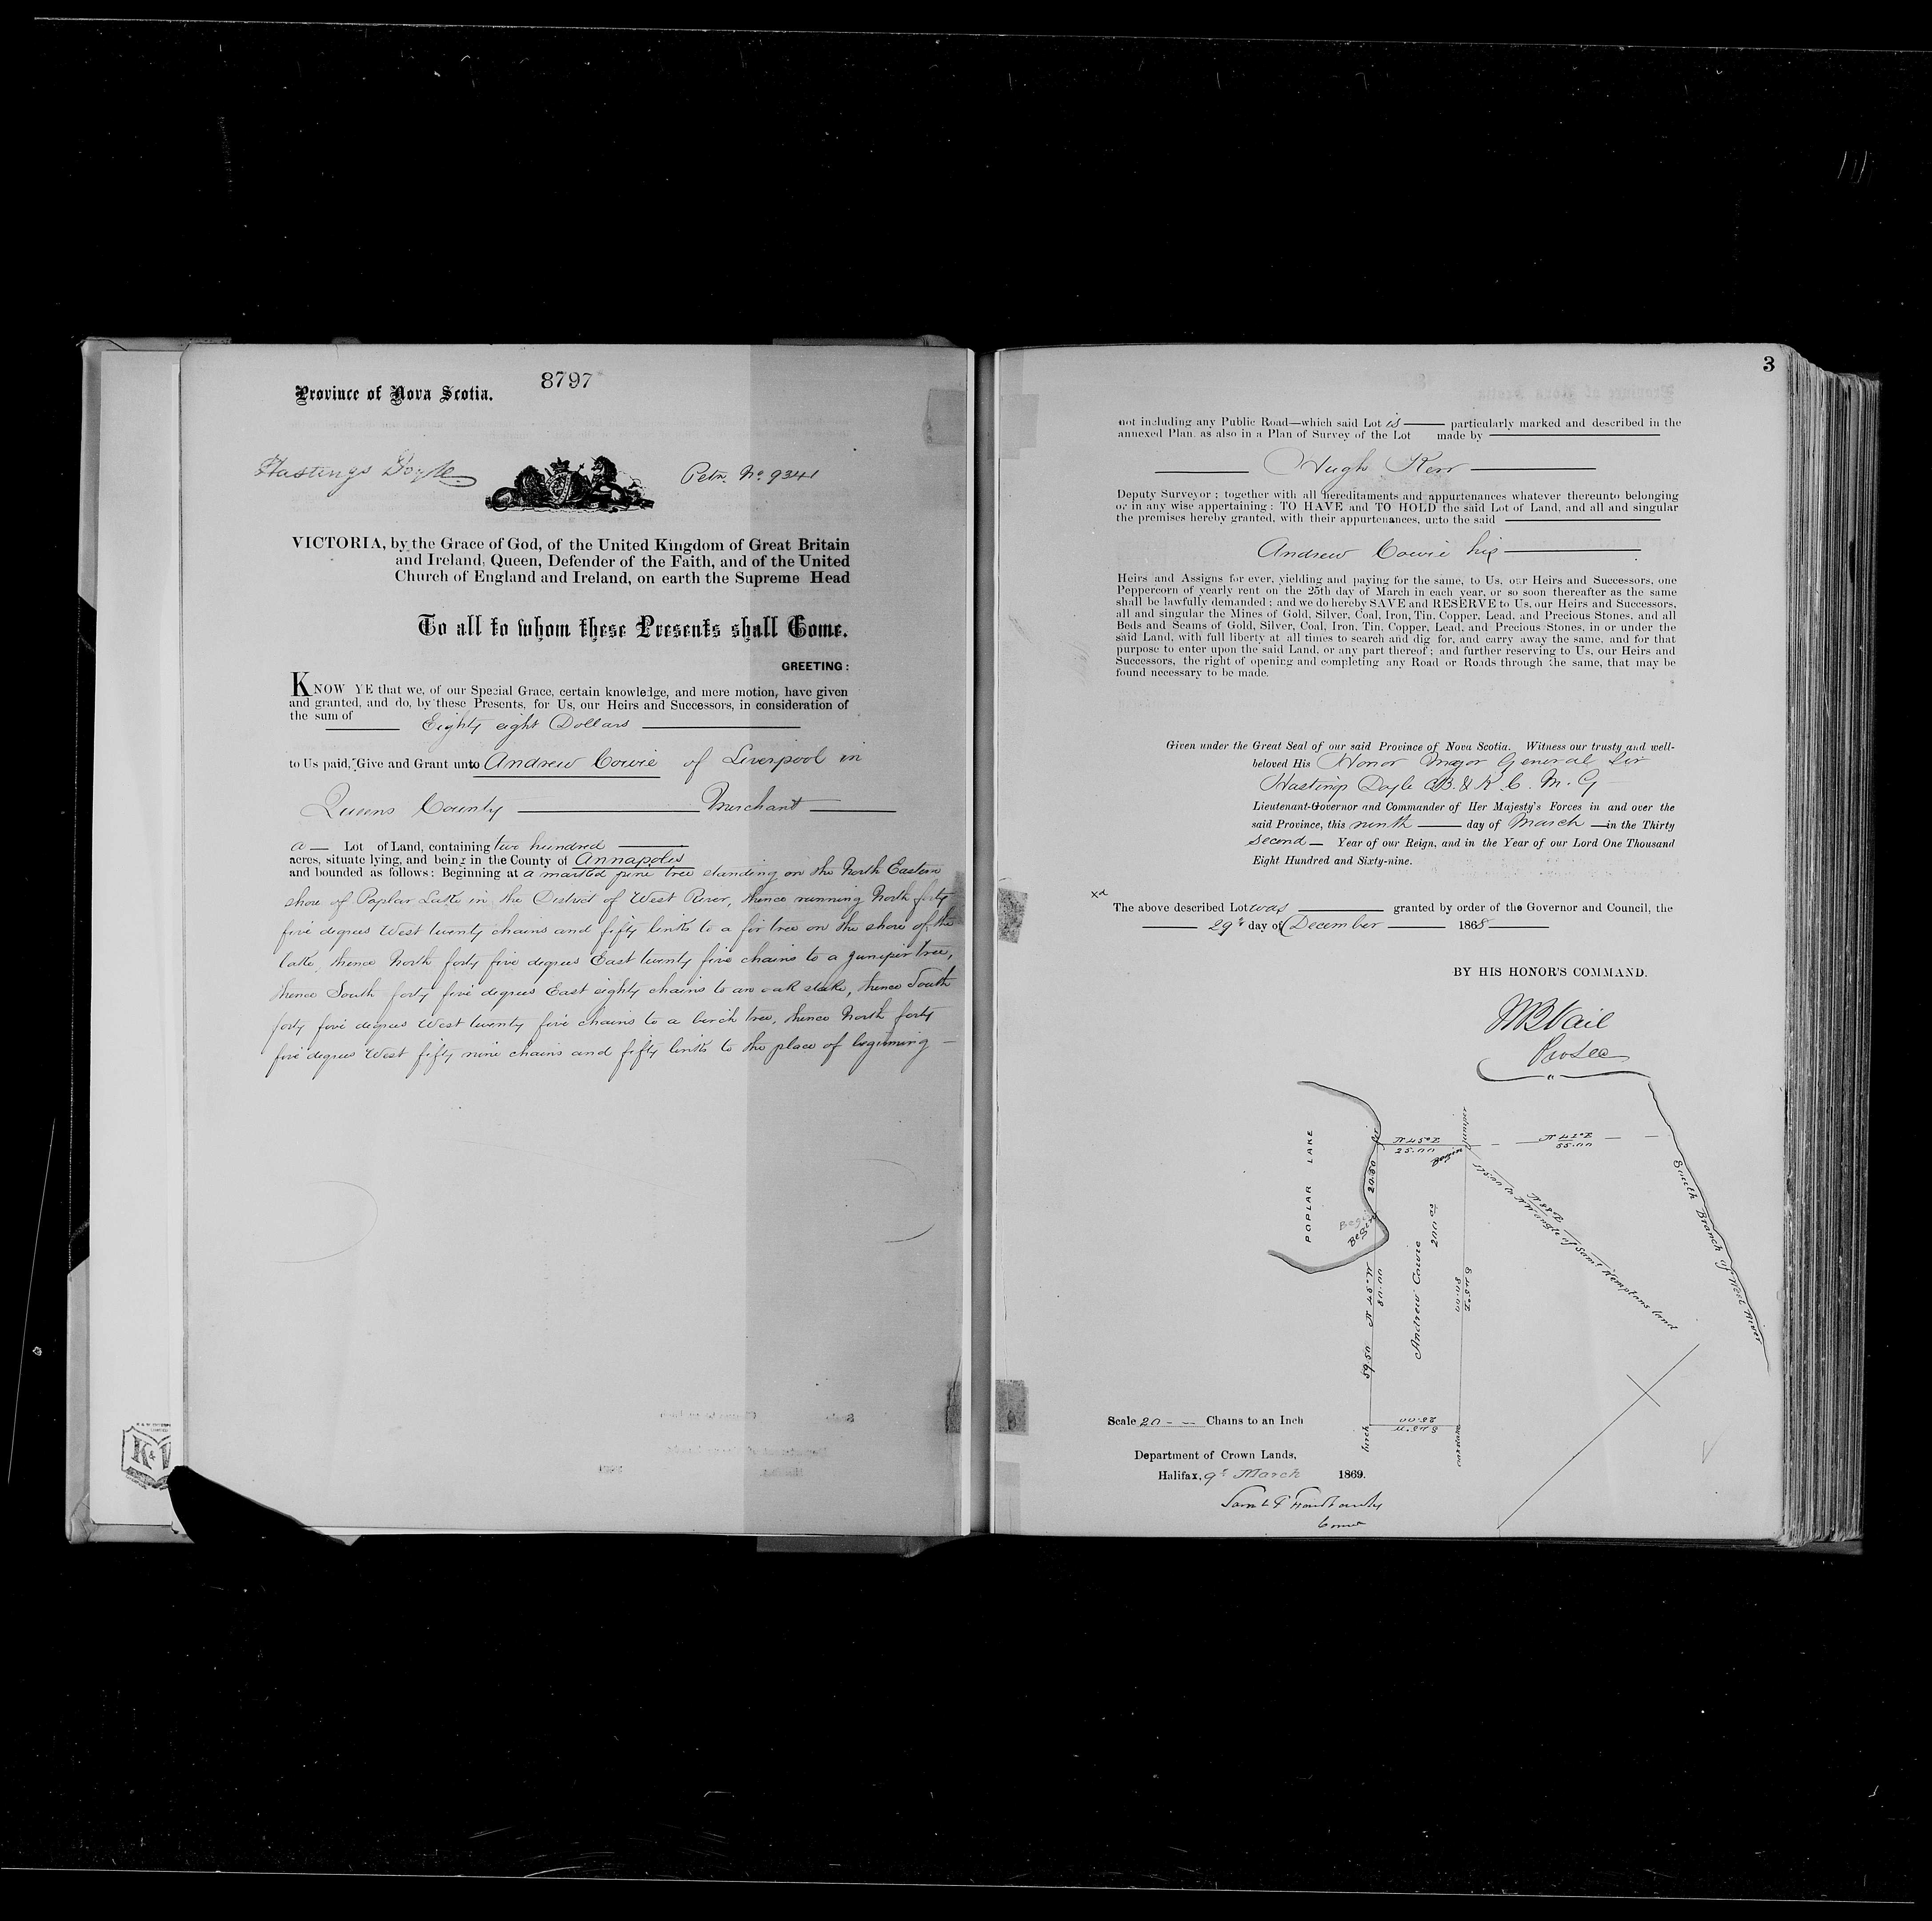 8797
Province of Nova Scotia.
Hastings Doyle
Petn. No. 9341
VICTORIA, by the Grace of God, of the United Kingdom of Great Britain
and Ireland, Queen, Defender of the Faith, and of the United
Church of England and Ireland, on earth the Supreme Head
To all to whom these Presents shall Come.
GREETING:
KNOW YE that we, of our Special Grace, certain knowledge, and mere motion, have given
and granted, and do, by these Presents, for Us, our Heirs and Successors, in consideration of
the sum of Eighty eight Dollars
to Us paid, Give and Grant unto Andrew Cowie of Liverpool in
Queens County Merchant
a Lot of Land, containing two hundred
acres, situate lying, and being in the County of Annapolis
and bounded as follows: Beginning at a marked pine tree standing on the North Eastern
shore of Poplar Lake in the District of West River, thence running North forty
five degrees West twenty chains and fifty links to a fir tree on the shore of the
lake, thence North forty five degrees East twenty five chains to a juniper tree,
thence South forty five degrees East eighty chains to an oak stake, thence South
forty five degrees West twenty five chains to a birch tree, thence North forty
five degrees West fifty nine chains and fifty links to the place of beginning
3
not including any Public Road—which said Lot is particularly marked and described in the
annexed Plan, as also in a Plan of Survey of the Lot made by
Hugh Kerr
Deputy Surveyor; together with all hereditaments and appurtenances whatever thereunto belonging
or in any wise appertaining: TO HAVE and TO HOLD the said Lot of Land, and all and singular
the premises hereby granted, with their appurtenances, unto the said
Andrew Cowie his
Heirs and Assigns for ever, yielding and paying for the same, to Us, our Heirs and Successors, one
Peppercorn of yearly rent on the 25th day of March in each year, or so soon thereafter as the same
shall be lawfully demanded; and we do hereby SAVE and RESERVE to Us, our Heirs and Successors,
all and singular the Mines of Gold, Silver, Coal, Iron, Tin, Copper, Lead, and Precious Stones, and all
Beds and Seams of Gold, Silver, Coal, Iron, Tin, Copper, Lead, and Precious Stones, in or under the
said Land, with full liberty at all times to search and dig for, and carry away the same, and for that
purpose to enter upon the said Land, or any part thereof; and further reserving to Us, our Heirs and
Successors, the right of opening and completing any Road or Roads through the same, that may be
found necessary to be made.
Given under the Great Seal of our said Province of Nova Scotia. Witness our trusty and well-
beloved His Honor Major General Sir
Hastings Doyle C.B. & K. C. M. G
Lieutenant-Governor and Commander of Her Majesty's Forces in and over the
said Province, this ninth day of March in the Thirty
Second Year of our Reign, and in the Year of our Lord One Thousand
Eight Hundred and Sixty-nine.
xd
The above described Lot was granted by order of the Governor and Council, the
29th day of December 1868
BY HIS HONOR'S COMMAND.
W B Vail
Pro Sec
POPLAR LAKE
fir
N 45° E
25.00
juniper
Begin
N 42° E
55.00
20.50
Begin
N 45° W
80.00
59.50
Andrew Cowie
200 as
S 45° E
80.00
N 88 E
angle of Saml Kemptons land
South Branch of West River
S 45° W
25.00
birch
oak stake
Scale 20 Chains to an Inch
Department of Crown Lands,
Halifax, 9th March 1869.